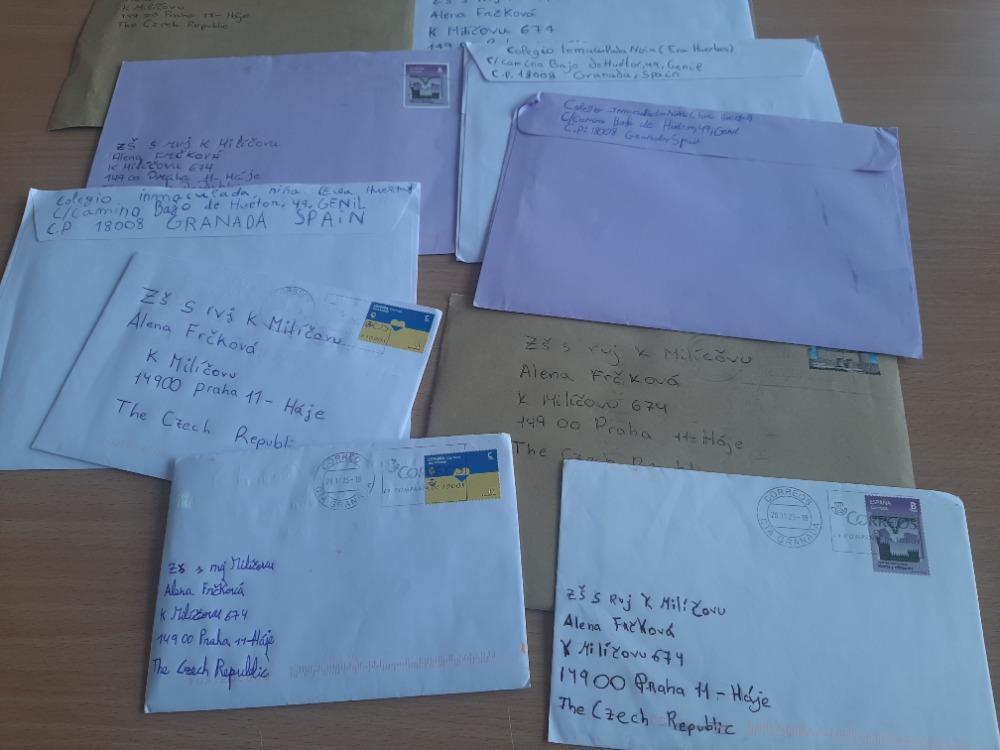 K Milíčovu
149 00 Praha 11-Háje
The Czech Republic
Alena Frčková
K Milíčovu 674
149 00 Praha 11-Háje
Colegio Inmaculada Niña (Eva Huertas)
C/Camino Bajo de Huétor, 49, Genil
C.P. 18008 Granada, Spain
ZŠ s rvj K Milíčovu
Alena Frčková
K Milíčovu 674
149 00 Praha 11-Háje
C/Camino Bajo de Huetor, 49, Genil
C.P: 18008 Granada, Spain
Colegio inmaculada niña (Eva Huertas
C/Camino Bajo de Huétor, 49, GENIL
C.P 18008 GRANADA SPAiN
ZŠ S rvj K Milíčovu
Alena Frčková
K Milíčovu
14900 praha 11-Háje
The Czech Republic
ZŠ s rvj K Milíčovu
Alena Frčková
K Milíčovu 674
149 00 Praha 11-Háje
The Czech Republic
CORREOS
ZŠ s rvj Milíčovu
Alena Frčková
K Milíčovu 674
149 00 Praha 11-Háje
The Czech Republic
CORREOS
CTA GRANADA
CORREOS
ESPAÑA
B
ZŠ S Rvj K Milíčovu
Alena Frčková
K Milíčovu 674
14900 Praha 11-Háje
The Czech Republic